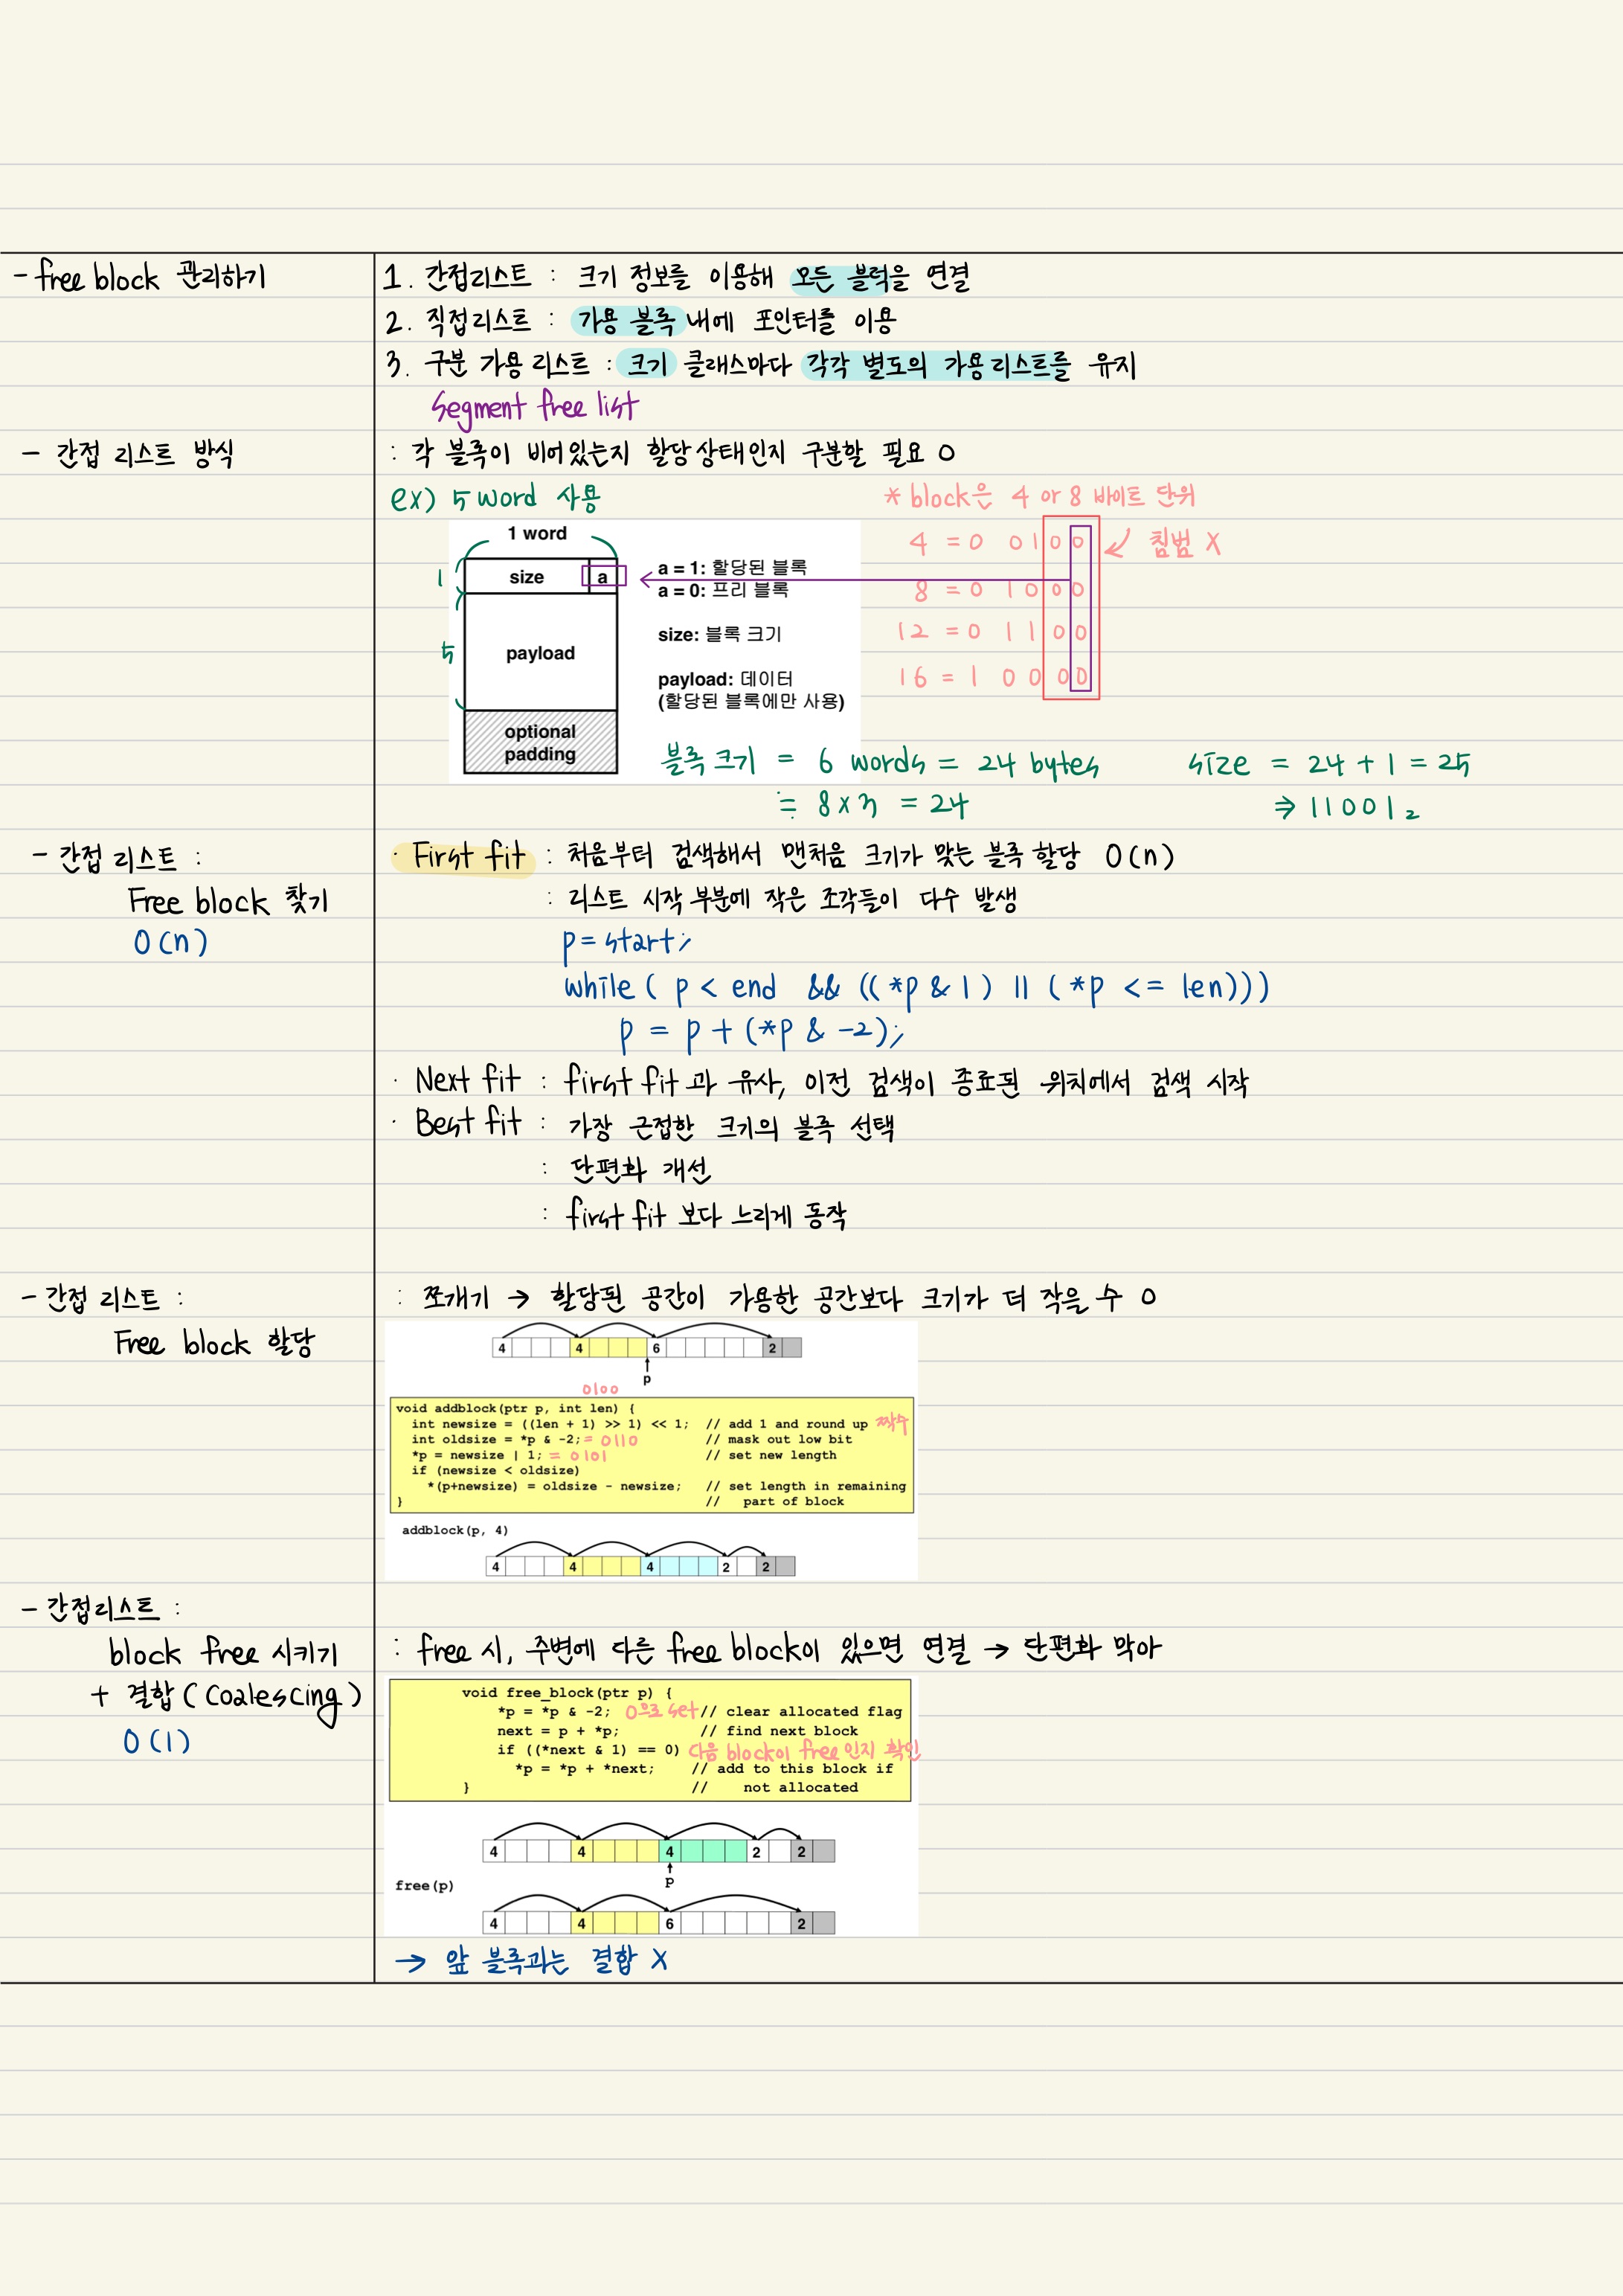 - free block 관리하기
1. 간접리스트 : 크기 정보를 이용해 모든 블럭을 연결
2. 직접리스트 : 가용 블록 내에 포인터를 이용
3. 구분 가용 리스트 : 크기 클래스마다 각각 별도의 가용리스트를 유지
segment free list
- 간접 리스트 방식
: 각 블록이 비어있는지 할당상태인지 구분할 필요 O
ex) 5 word 사용
* block은 4 or 8 바이트 단위
1 word
1
size
a
5
payload
optional
padding
a = 1: 할당된 블록
a = 0: 프리 블록
size: 블록 크기
payload: 데이터
(할당된 블록에만 사용)
4 = 0 0 1 0 0
침범 X
8 = 0 1 0 0 0
12 = 0 1 1 0 0
16 = 1 0 0 0 0
블록 크기 = 6 words = 24 bytes
= 8 x 3 = 24
size = 24 + 1 = 25
⇒ 11001₂
- 간접 리스트 :
Free block 찾기
O(n)
· First fit : 처음부터 검색해서 맨처음 크기가 맞는 블록 할당 O(n)
: 리스트 시작 부분에 작은 조각들이 다수 발생
p = start;
while ( p < end && ((*p & 1) || (*p <= len)))
p = p + (*p & -2);
· Next fit : first fit과 유사, 이전 검색이 종료된 위치에서 검색 시작
· Best fit : 가장 근접한 크기의 블록 선택
: 단편화 개선
: first fit 보다 느리게 동작
- 간접 리스트 :
Free block 할당
: 쪼개기 → 할당된 공간이 가용한 공간보다 크기가 더 작을 수 O
4 4 6 2
p
0100
void addblock(ptr p, int len) {
int newsize = ((len + 1) >> 1) << 1; // add 1 and round up 짝수
int oldsize = *p & -2; = 0110 // mask out low bit
*p = newsize | 1; = 0101 // set new length
if (newsize < oldsize)
*(p+newsize) = oldsize - newsize; // set length in remaining
} // part of block
addblock(p, 4)
4 4 4 2 2
- 간접리스트 :
block free 시키기
+ 결합 (Coalescing)
O(1)
: free 시, 주변에 다른 free block이 있으면 연결 → 단편화 막아
void free_block(ptr p) {
*p = *p & -2; 0으로 set // clear allocated flag
next = p + *p; // find next block
if ((*next & 1) == 0) 다음 block이 free인지 확인
*p = *p + *next; // add to this block if
} // not allocated
4 4 4 2 2
p
free(p)
4 4 6 2
→ 앞 블록과는 결합 X